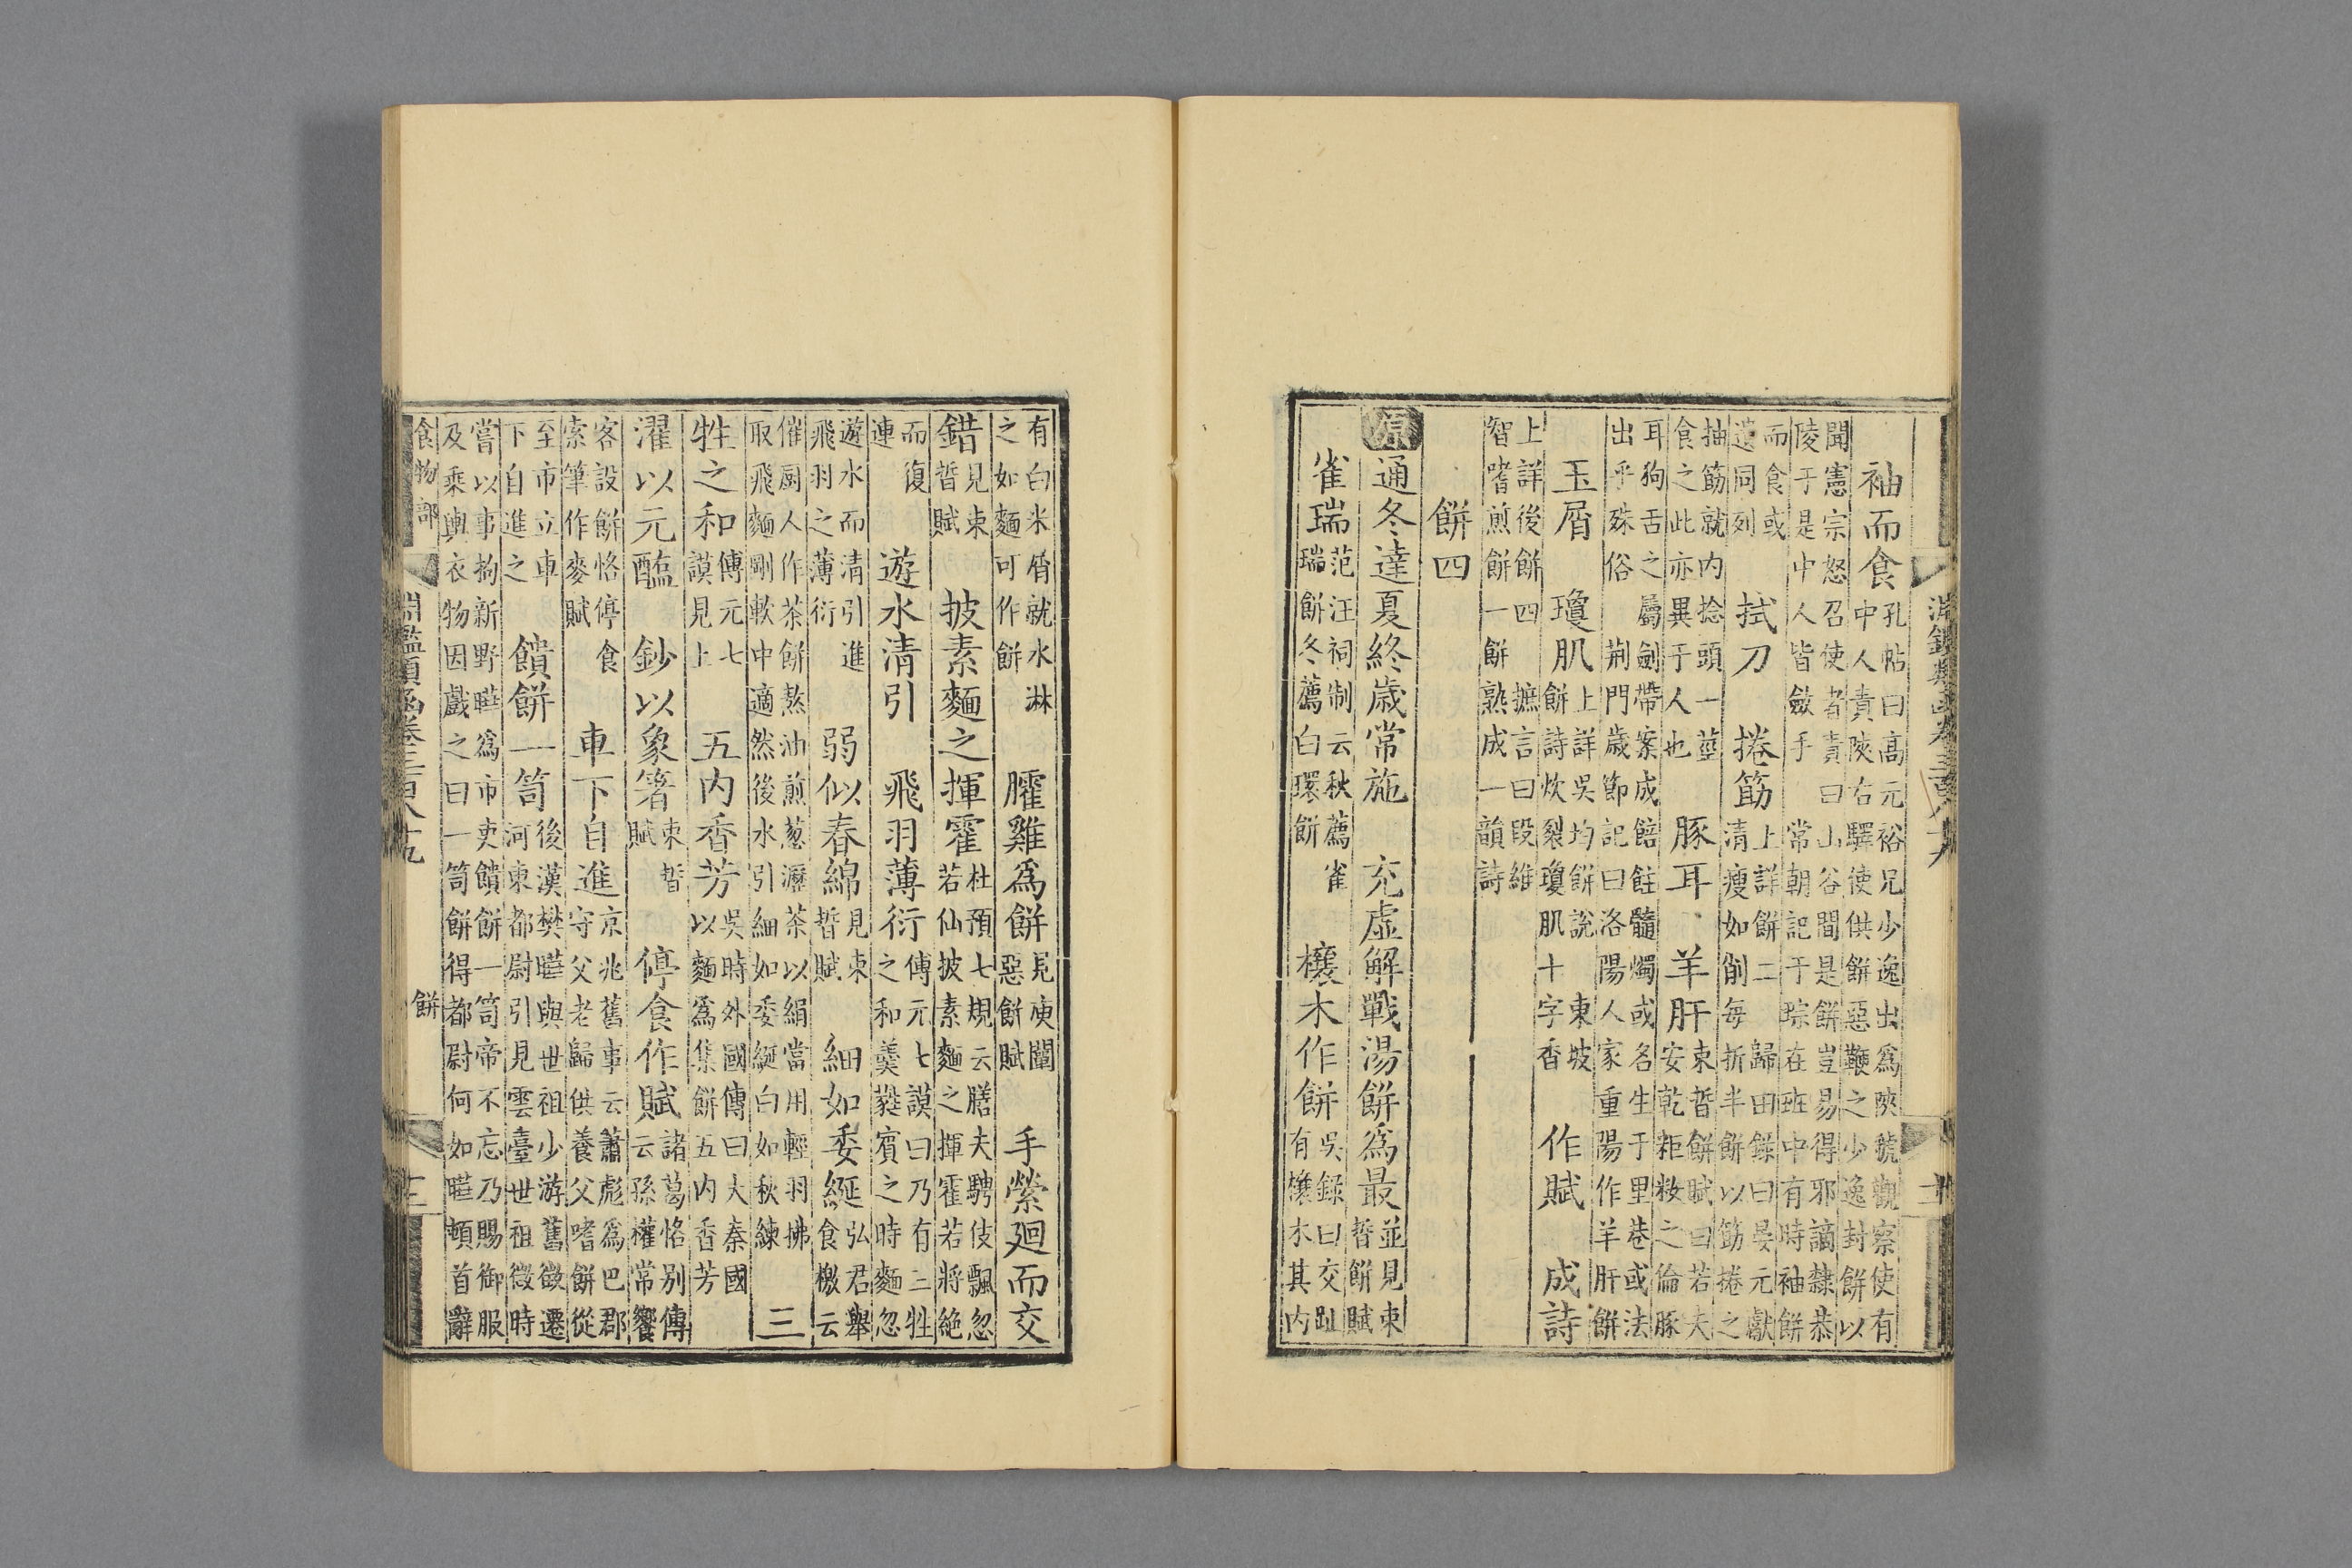 淵鑑類函卷三百八十九 十二
袖而食孔帖曰高元裕兄少逸出爲陝虢觀察使有中人責陝右驛使供餅惡鞭之少逸封餅以
聞憲宗怒召使者責曰山谷間是餅豈易得邪謫隸恭陵于是中人皆斂手 常朝記于踪在班中有時袖餅
而食或遺同列 拭刀 捲筯上詳餅二 歸田錄曰晏元獻清瘦如削每折半餅以筯捲之
抽筯就内捻頭一莖食之此亦異于人也 豚耳 羊肝束晳餅賦曰若夫安乾粔籹之倫豚
耳狗舌之屬劍帶案成餢飳髓燭或名生于里巷或法出乎殊俗 荆門歲節記曰洛陽人家重陽作羊肝餅
玉屑 瓊肌上詳吳均餅說 東坡餅詩炊裂瓊肌十字香 作賦 成詩
上詳後餅四 摭言曰段維智嗜煎餅一餅熟成一韻詩
餅四
原通冬達夏終歲常施 充虛解戰湯餅爲最並見束晳餅賦
雀瑞范汪祠制云秋薦雀瑞餅冬薦白環餅 欀木作餅吳錄曰交趾有欀木其内
有白米屑就水淋之如麵可作餅 臛雞爲餅見庾闡惡餅賦 手縈迴而交
錯見束晳賦 披素麵之揮霍杜預七規云膳夫騁伎飄忽若仙披素麵之揮霍若將絶
而復連 遊水清引 飛羽薄衍傅元七謨曰乃有三牲之和羹蕤賓之時麵忽
遊水而清引進飛羽之薄衍 弱似春綿見束晳賦 細如委綖弘君舉食檄云
催厨人作茶餅熬油煎葱瀝茶以絹當用輕羽拂取飛麵剛軟中適然後水引細如委綖白如秋練 三
牲之和傅元七謨見上 五内香芳吳時外國傳曰大秦國以麵爲集餅五内香芳
濯以元醢 鈔以象箸束晳賦 停食作賦諸葛恪别傳云孫權常饗
客設餅恪停食索筆作麥賦 車下自進京兆舊事云蕭彪爲巴郡守父老歸供養父嗜餅從
至市立車下自進之 饋餅一笥後漢樊曄與世祖少游舊徵遷河東都尉引見雲臺世祖微時
嘗以事拘新野曄爲市吏饋餅一笥帝不忘乃賜御服及乘輿衣物因戲之曰一笥餅得都尉何如曄頓首辭
食物部 淵鑑類函卷三百八十九 餅 十三